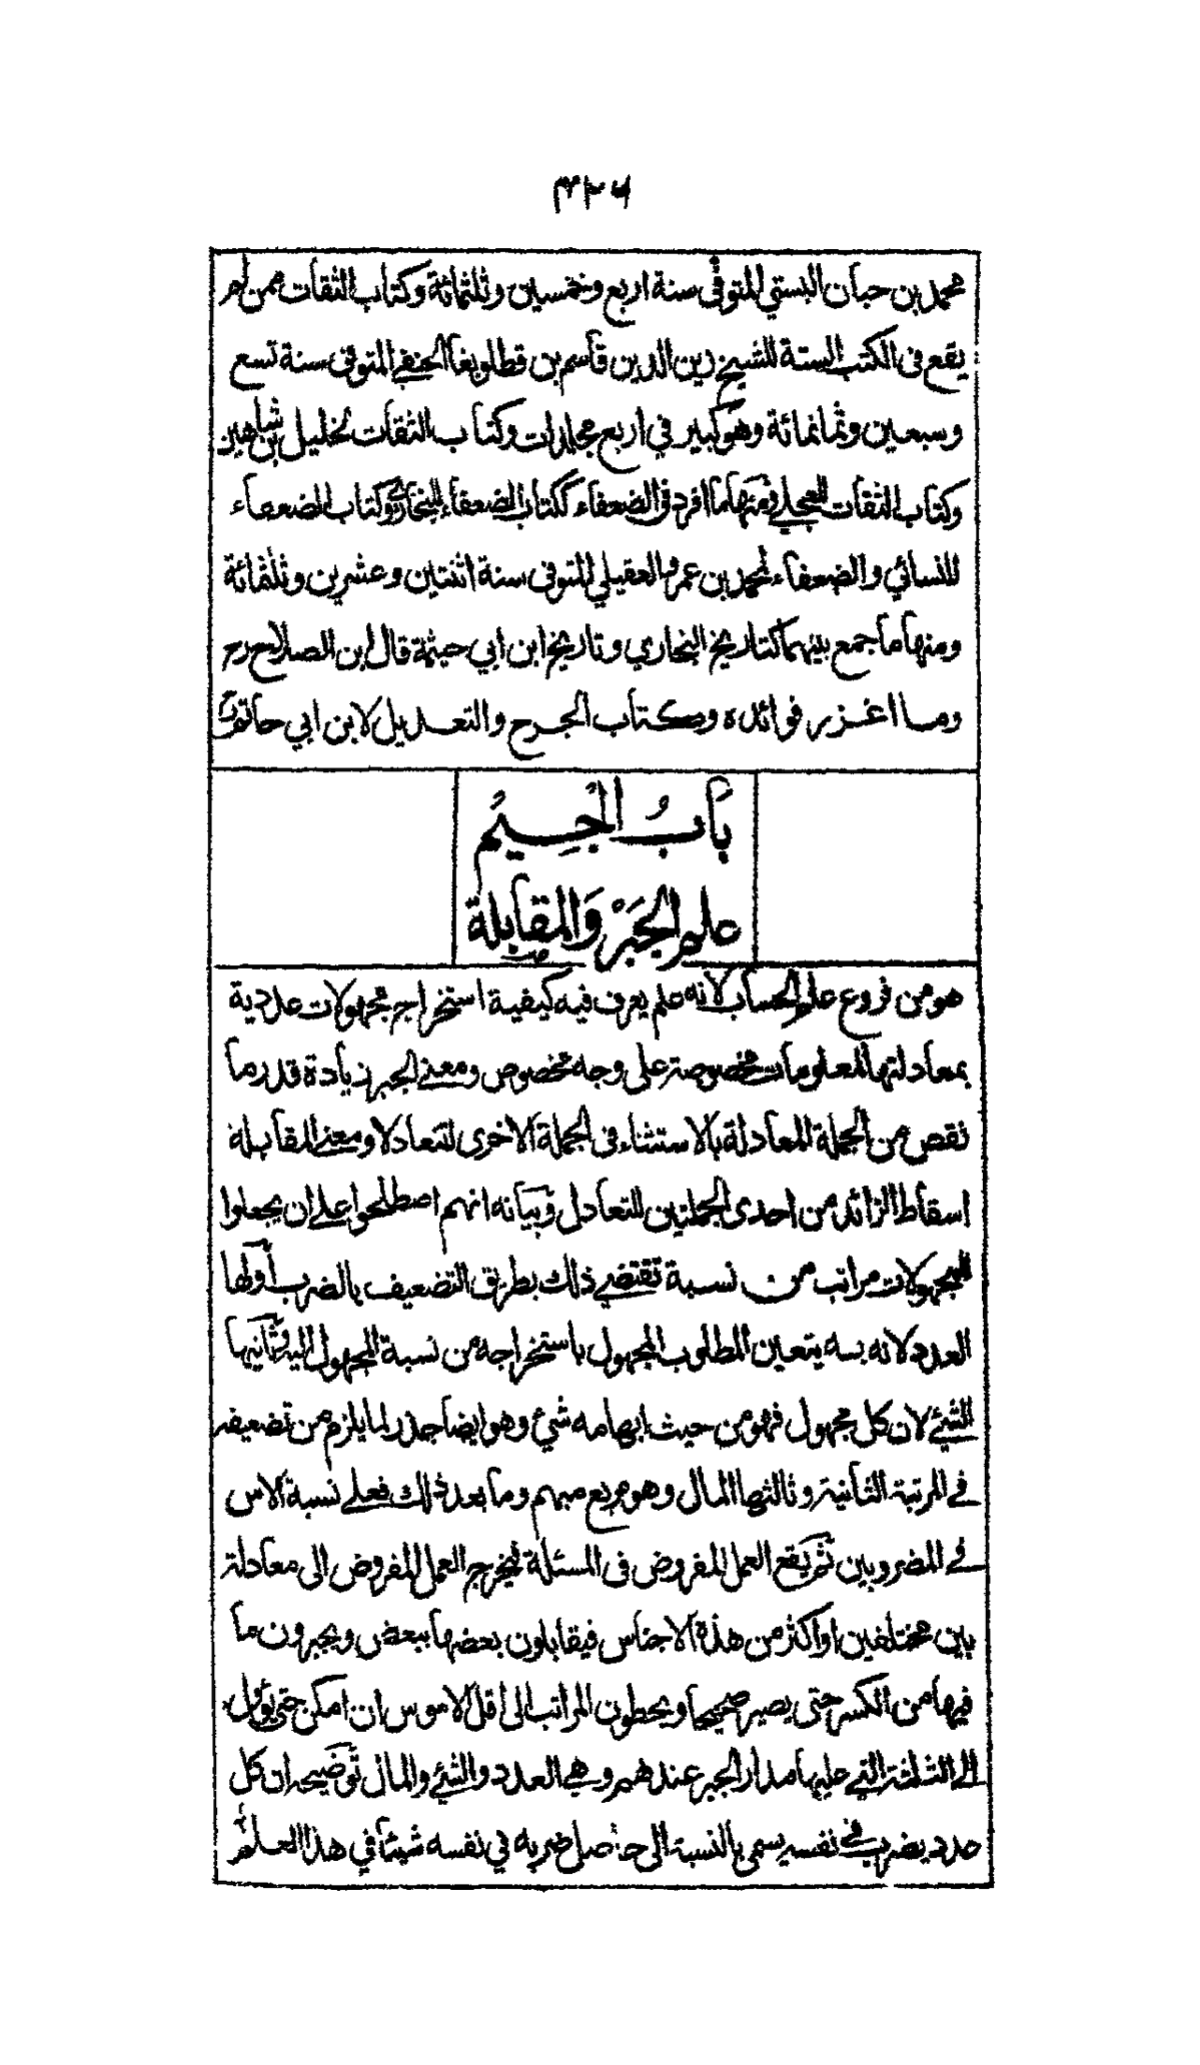 ٣٢٦
محمد بن حبان البستي المتوفى سنة اربع وخمسين وثلثمائة وكتاب الثقات ممن لم
يقع فى الكتب الستة للشيخ زين الدين قاسم بن قطلوبغا الحنفي المتوفى سنة تسع
وسبعين وثمانمائة وهو كبير في اربع مجلدات وكتاب الثقات لخليل بن شاهين
وكتاب الثقات للعجلي ومنها ما افرد فى الضعفاء ككتاب الضعفاء للبخاري وكتاب الضعفاء
للنسائي والضعفاء لمحمد بن عمرو العقيلي المتوفى سنة اثنتين وعشرين وثلثمائة
ومنها ما جمع بينهما كتاريخ البخاري وتاريخ ابن ابي خيثمة قال ابن الصلاح رح
وما اغزر فوائده وكتاب الجرح والتعديل لابن ابي حاتم
بَابُ الْجِيْمُ
علم الجَبَرْ وَالمقابلة
هو من فروع علم الحساب لانه علم يعرف فيه كيفية استخراج مجهولات عددية
بمعادلتها لمعلومات مخصوصة على وجه مخصوص ومعنى الجبر زيادة قدر ما
نقص من الجملة المعادلة بالاستثناء فى الجملة الاخرى لتتعادلا ومعنى المقابلة
اسقاط الزائد من احدى الجملتين للتعادل وبيانه انهم اصطلحوا على ان يجعلوا
للمجهولات مراتب من نسبة تقتضي ذلك بطريق التضعيف بالضرب أولها
العدد لانه به يتعين المطلوب المجهول باستخراجه من نسبة المجهول اليه وثانيها
الشئ لان كل مجهول فهو من حيث ابهامه شئ وهو ايضا جذر لما يلزم من تضعيفه
في المرتبة الثانية وثالثها المال وهو مربع مبهم وما بعد ذلك فعلى نسبة الاس
في المضروبين ثم يقع العمل المفروض فى المسئلة فيخرج العمل المفروض الى معادلة
بين مختلفين او اكثر من هذه الاجناس فيقابلون بعضها ببعض ويجبرون ما
فيها من الكسر حتى يصير صحيحا ويحطون المراتب الى اقل الاموس ان امكن حتى يؤل
الى الثلثة التي عليها مدار الجبر عندهم وهي العدد والشئ والمال توضيحه ان كل
عدد يضرب في نفسه يسمى بالنسبة الى حاصل ضربه في نفسه شيئا في هذا العلم